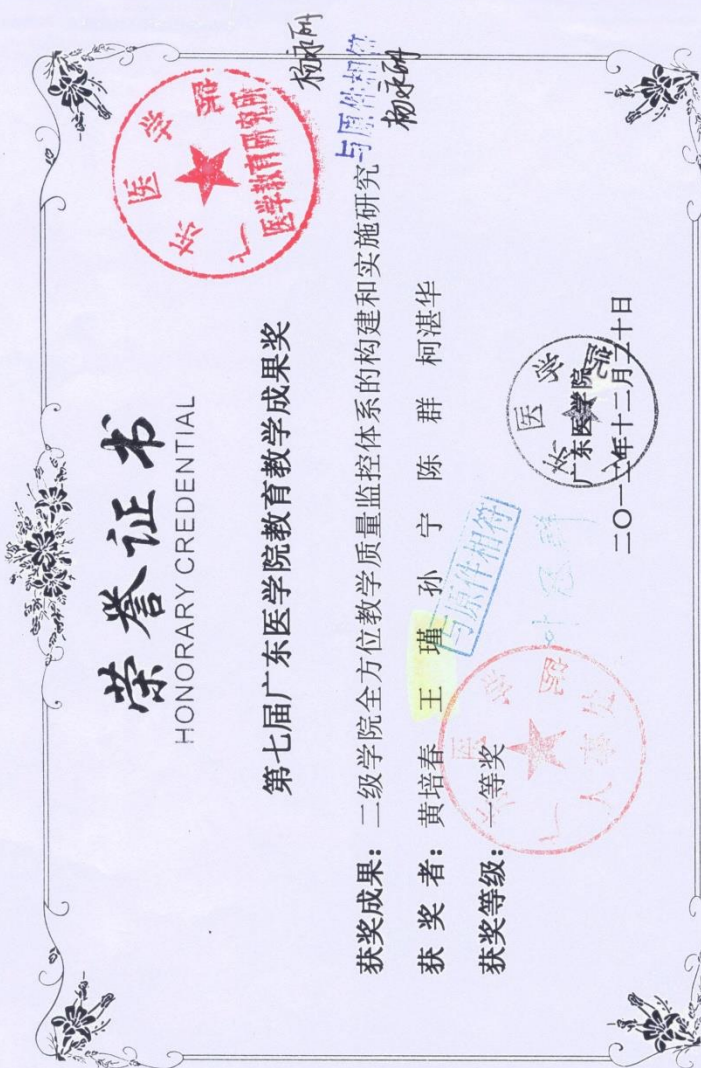 荣誉证书
HONORARY CREDENTIAL
第七届广东医学院教育教学成果奖
获奖成果：二级学院全方位教学质量监控体系的构建和实施研究
获 奖 者：黄培春 王 瑾 孙 宁 陈 群 柯湛华
获奖等级：一等奖
广东医学院
二〇一二年十二月 十日
广东医学院
医学教育研究所
与原件相符
与原件相符
广东医学院
人事处
广东医学院